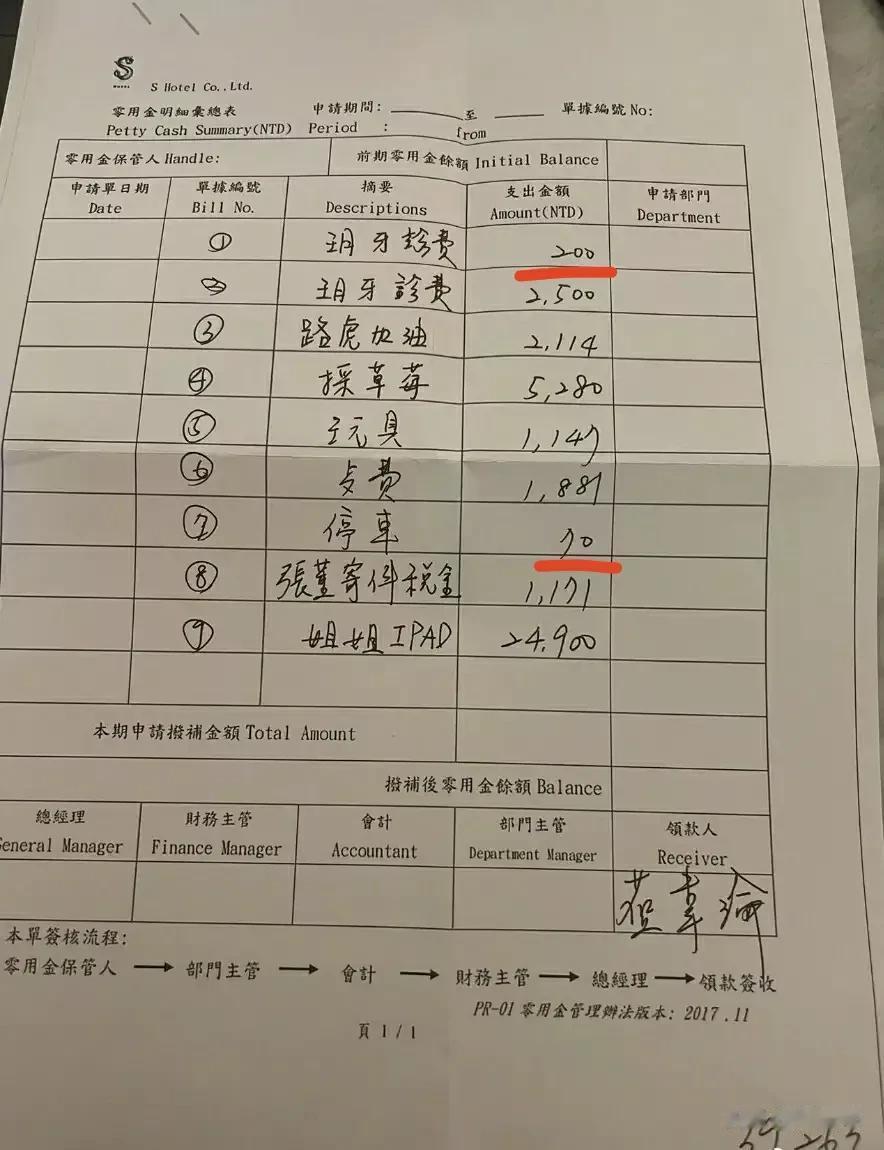 S
S Hotel Co., Ltd.
零用金明細彙總表 申請期間: 至 單據編號 No:
Petty Cash Summary(NTD) Period : from
零用金保管人 Handle: 前期零用金餘額 Initial Balance
申請單日期 單據編號 摘要 支出金額 申請部門
Date Bill No. Descriptions Amount(NTD) Department
① 玥牙診費 200
② 玥牙診費 2,500
③ 路虎加油 2,114
④ 採草莓 5,280
⑤ 玩具 1,147
⑥ 費 1,881
⑦ 停車 70
⑧ 張董寄件稅金 1,171
⑨ 姐姐IPAD 24,900
本期申請撥補金額 Total Amount
撥補後零用金餘額 Balance
總經理 財務主管 會計 部門主管 領款人
General Manager Finance Manager Accountant Department Manager Receiver
本單簽核流程:
零用金保管人 → 部門主管 → 會計 → 財務主管 → 總經理 → 領款簽收
PR-01 零用金管理辦法版本: 2017.11
頁 1/1